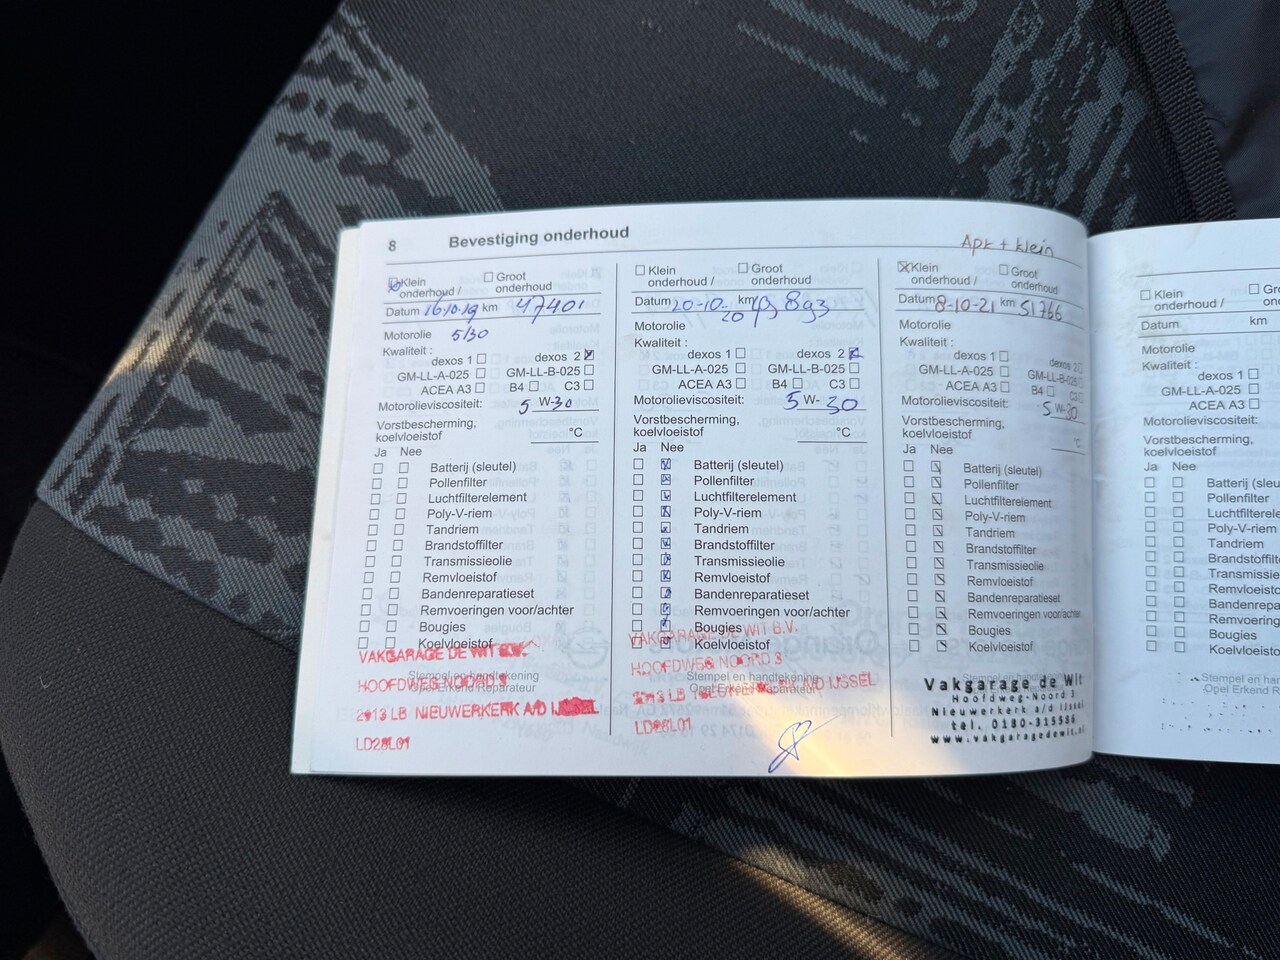 8 Bevestiging onderhoud
Apk + klein
Klein onderhoud /
Groot onderhoud
Datum 16.10.19 km 47401
Motorolie 5/30
Kwaliteit :
dexos 1 dexos 2
GM-LL-A-025 GM-LL-B-025
ACEA A3 B4 C3
Motorolieviscositeit: 5 W-30
Vorstbescherming,
koelvloeistof °C
Ja Nee
Batterij (sleutel)
Pollenfilter
Luchtfilterelement
Poly-V-riem
Tandriem
Brandstoffilter
Transmissieolie
Remvloeistof
Bandenreparatieset
Remvoeringen voor/achter
Bougies
Koelvloeistof
Stempel en handtekening
Opel Erkend Reparateur
VAKGARAGE DE WIT B.V.
HOOFDWEG NOORD 3
2913 LB NIEUWERKERK A/D IJSSEL
LD28L01
Klein onderhoud /
Groot onderhoud
Datum 20-10-20 km
Motorolie
Kwaliteit :
dexos 1 dexos 2
GM-LL-A-025 GM-LL-B-025
ACEA A3 B4 C3
Motorolieviscositeit: 5 W-30
Vorstbescherming,
koelvloeistof °C
Ja Nee
Batterij (sleutel)
Pollenfilter
Luchtfilterelement
Poly-V-riem
Tandriem
Brandstoffilter
Transmissieolie
Remvloeistof
Bandenreparatieset
Remvoeringen voor/achter
Bougies
Koelvloeistof
Stempel en handtekening
Opel Erkend Reparateur
VAKGARAGE DE WIT B.V.
HOOFDWEG NOORD 3
2913 LB NIEUWERKERK A/D IJSSEL
LD28L01
Klein onderhoud /
Groot onderhoud
Datum 8-10-21 km 51766
Motorolie
Kwaliteit :
dexos 1 dexos 2
GM-LL-A-025 GM-LL-B-025
ACEA A3 B4
Motorolieviscositeit: 5 W-30
Vorstbescherming,
koelvloeistof °C
Ja Nee
Batterij (sleutel)
Pollenfilter
Luchtfilterelement
Poly-V-riem
Tandriem
Brandstoffilter
Transmissieolie
Remvloeistof
Bandenreparatieset
Remvoeringen voor/achter
Bougies
Koelvloeistof
Stempel en handtekening
Opel Erkend Reparateur
Vakgarage de Wit
Hoofdweg-Noord 3
Nieuwerkerk a/d IJssel
tel. 0180-315586
www.vakgaragedewit.nl
Klein onderhoud /
Datum km
Motorolie
Kwaliteit :
dexos 1
GM-LL-A-025
ACEA A3
Motorolieviscositeit:
Vorstbescherming,
koelvloeistof
Ja Nee
Batterij (sleu
Pollenfilter
Luchtfiltere
Poly-V-riem
Tandriem
Brandstoffilt
Transmissie
Remvloeisto
Bandenrepa
Remvoering
Bougies
Koelvloeisto
Stempel en hand
Opel Erkend R